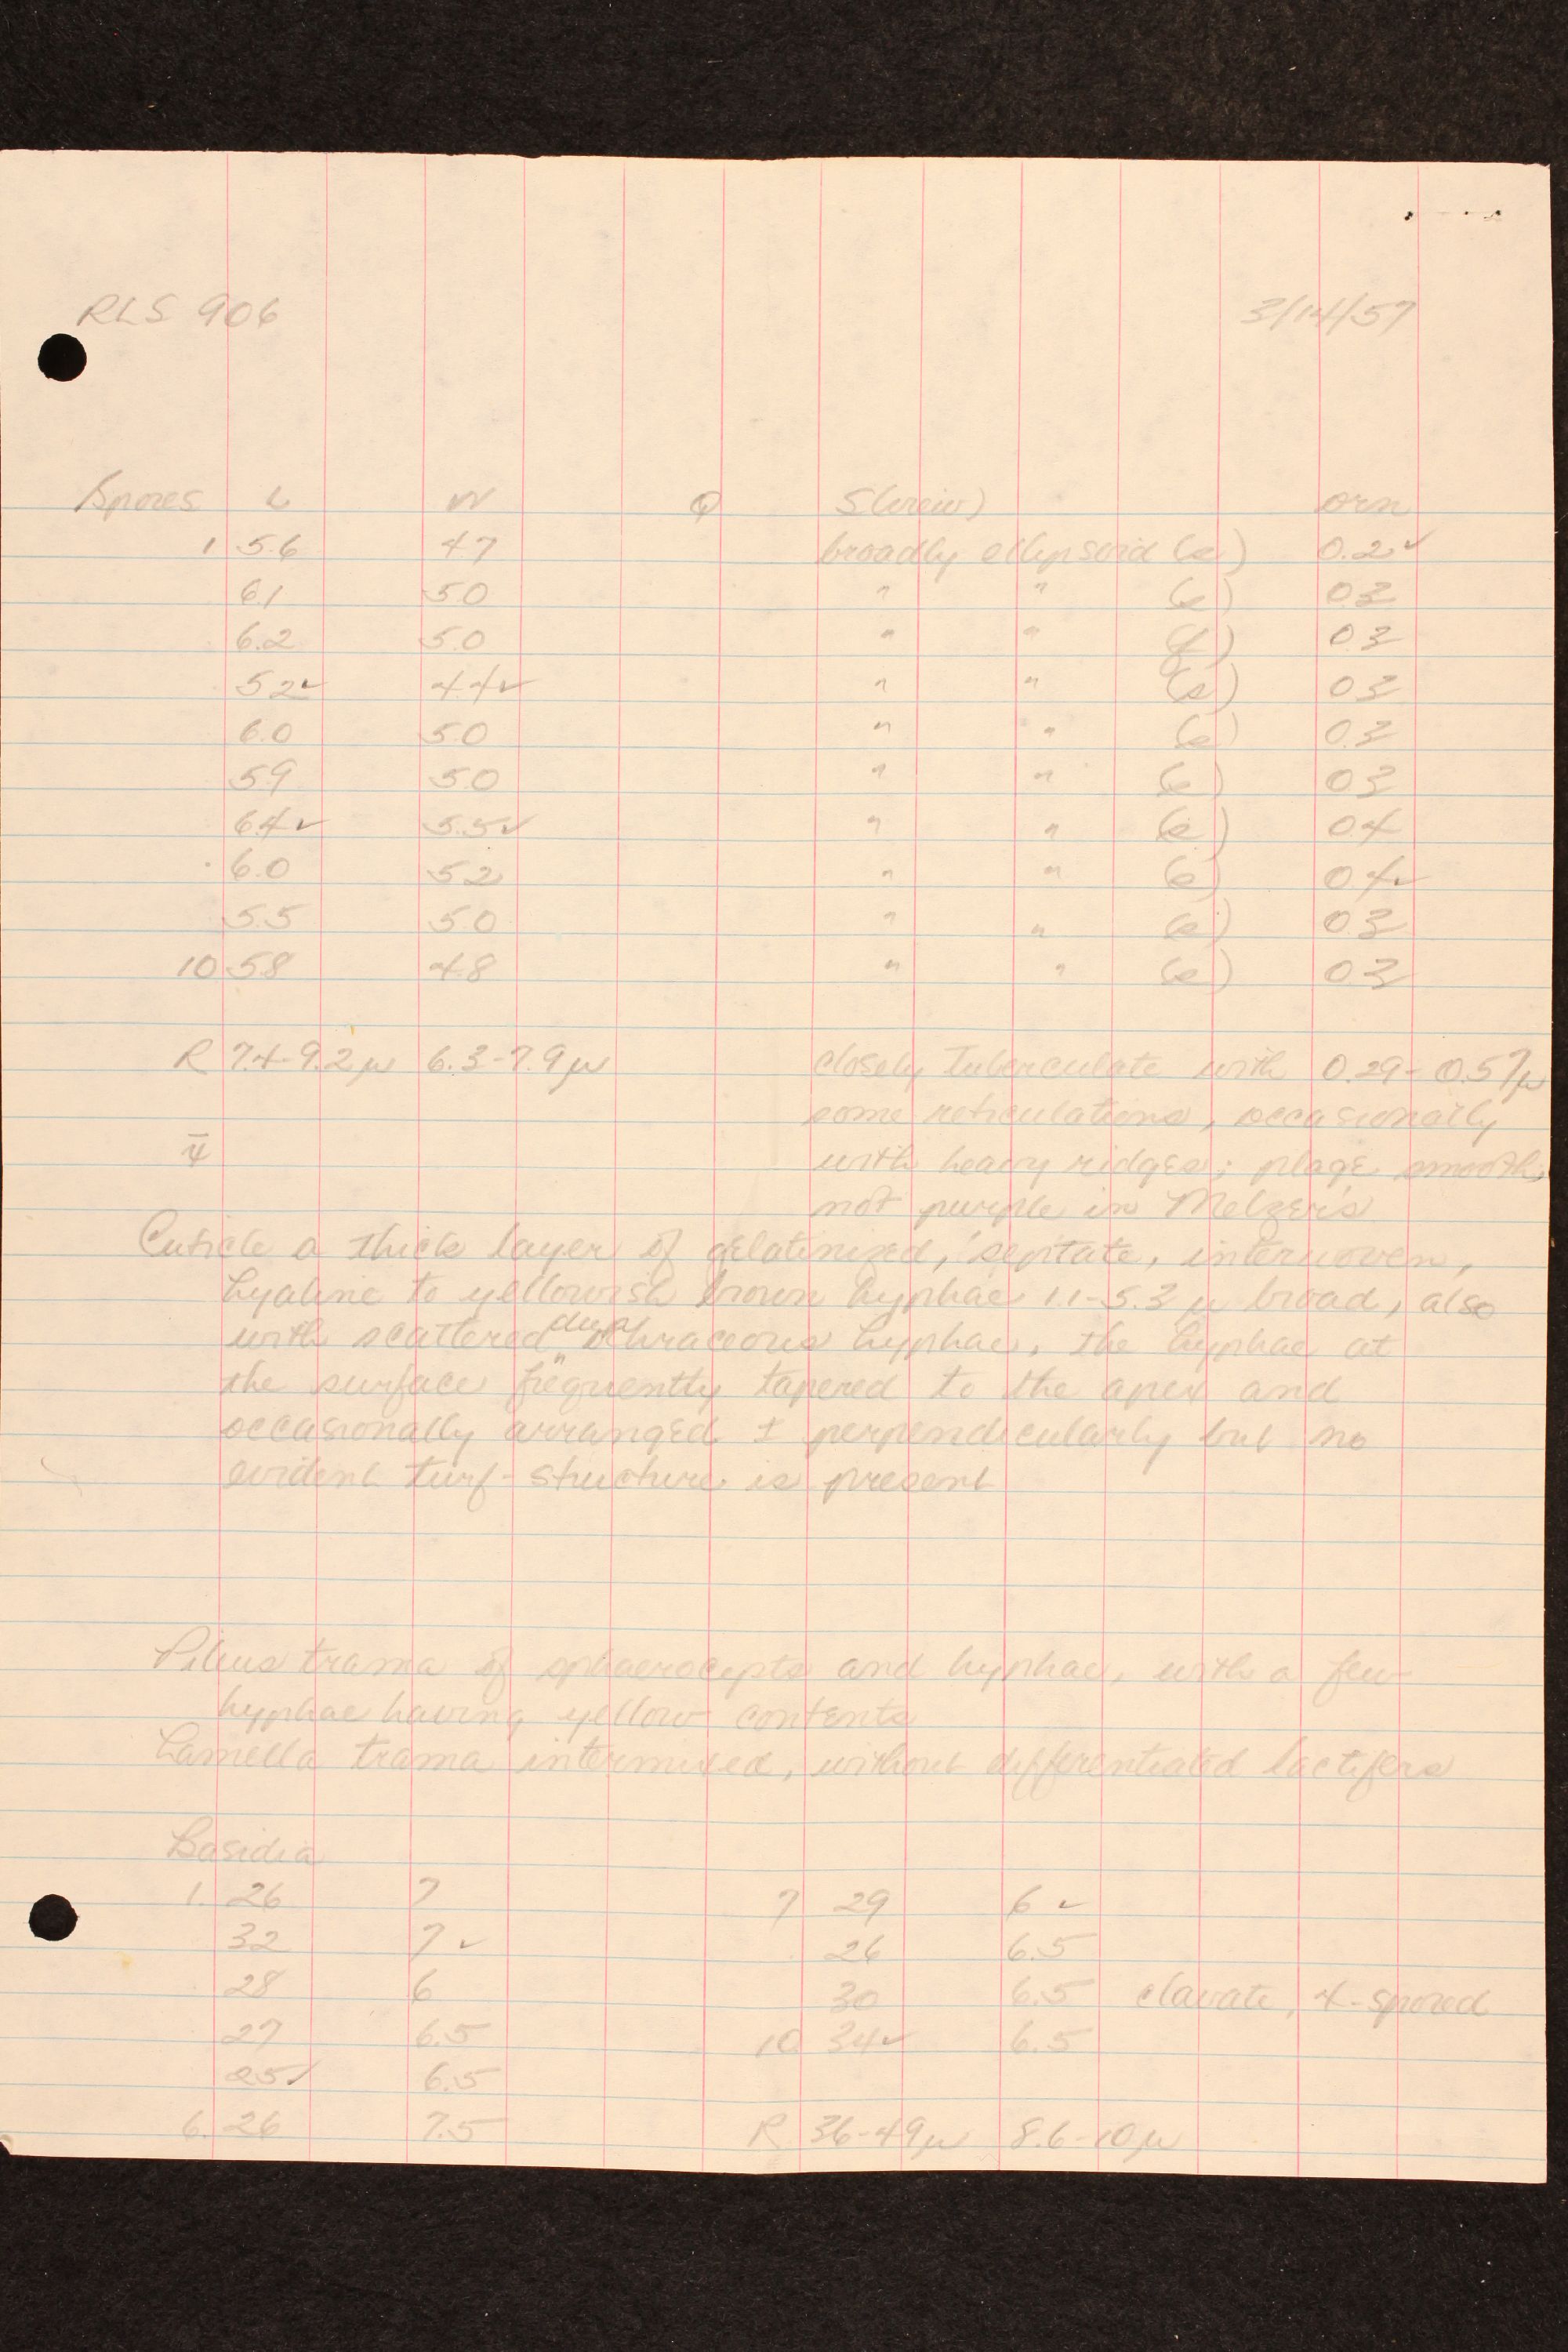 RLS 906 3/14/57
Spores L W Q S(view) orn
1 5.6 4.7 broadly ellipsoid (e) 0.2✓
6.1 5.0 " " (e) 0.3
6.2 5.0 " " (f) 0.3
5.2✓ 4.4✓ " " (e) 0.3
6.0 5.0 " " (e) 0.3
5.9 5.0 " " (e) 0.3
6.4✓ 5.5✓ " " (e) 0.4
6.0 5.2 " " (e) 0.4✓
5.5 5.0 " " (e) 0.3
10 5.8 4.8 " " (e) 0.3
R 7.4-9.2μ 6.3-7.9μ closely tuberculate with 0.29-0.57μ
some reticulations, occasionally
with heavy ridges; plage smooth,
not purple in Melzer's
Cuticle a thick layer of gelatinized, septate, interwoven,
hyaline to yellowish brown hyphae 1.1-5.3 μ broad, also
with scattered hyphae, the hyphae at
the surface frequently tapered to the apex and
occasionally arranged ± perpendicularly but no
evident turf-structure is present
Pileus trama of sphaerocysts and hyphae, with a few
hyphae having yellow contents
Lamella trama intermixed, without differentiated lactifers
Basidia
1. 26 7 7 29 6 ✓
32 7 ✓ 26 6.5
28 6 30 6.5 clavate, 4-spored
27 6.5 10 34✓ 6.5
25✓ 6.5
6. 26 7.5 R 36-49μ 8.6-10μ